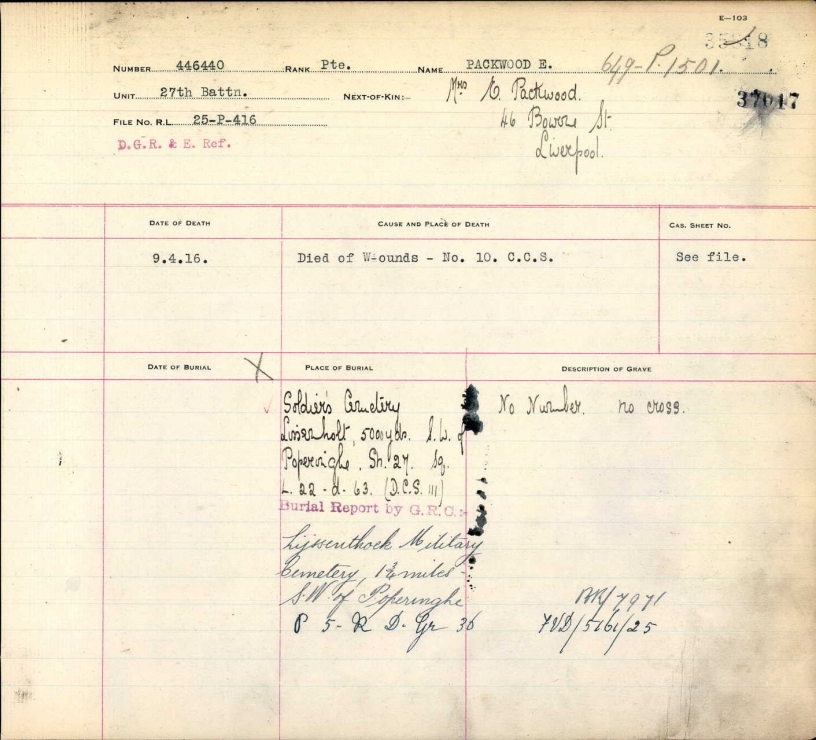 E—103
NUMBER 446440 RANK Pte. NAME PACKWOOD E. 649-P-1501.
UNIT 27th Battn. NEXT-OF-KIN:- Mrs E. Packwood.
37017
46 St
FILE No. R.L. 25-P-416
Liverpool.
D.G.R. & E. Ref.
DATE OF DEATH CAUSE AND PLACE OF DEATH CAS. SHEET NO.
9.4.16. Died of Wounds - No. 10. C.C.S. See file.
DATE OF BURIAL X PLACE OF BURIAL DESCRIPTION OF GRAVE
Soldier's Cemetery No Number. no cross.
5000 yds. S.W. of
Poperinghe, Sh. 27. Sq.
L. 22 - d. 63. (D.C.S. 111)
Burial Report by G.R.C.:-
Lijssenthoek Military
Cemetery, 1¾ miles
S.W. of Poperinghe 7971
P 5- R D- Gr 36 /5161/25